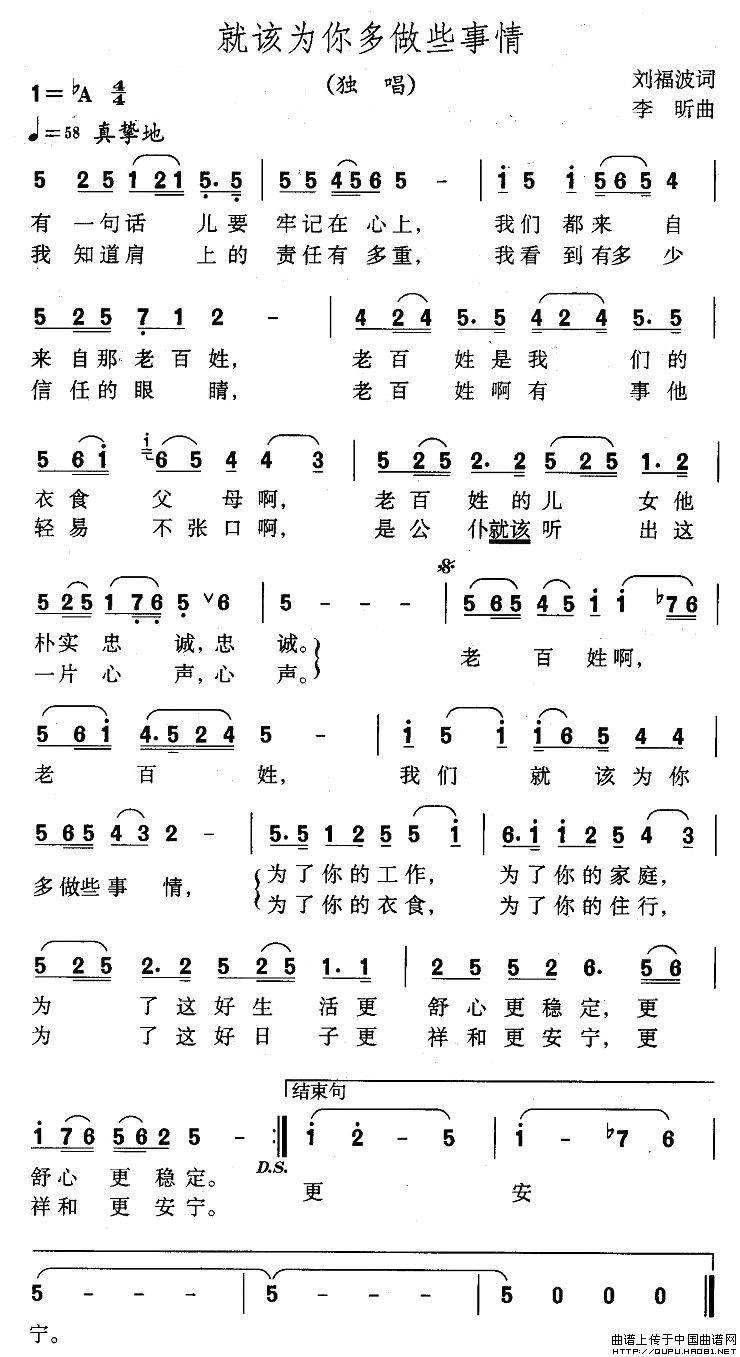 就该为你多做些事情
(独 唱)
1=♭A 4/4
刘福波词
李 昕曲
♩=58 真挚地
5 2 5 1 2 1 5. 5 | 5 5 4 5 6 5 - | i 5 i 5 6 5 4 |
有 一句话 儿要 牢记在 心上, 我们 都来 自
我 知道肩 上的 责任有 多重, 我看 到有多 少
5 2 5 7 1 2 - | 4 2 4 5. 5 4 2 4 5. 5 |
来自那老百姓, 老百 姓是我 们的
信任的眼 睛, 老百 姓啊有 事他
5 6 i i 6 5 4 4 3 | 5 2 5 2. 2 5 2 5 1. 2 |
衣食 父 母啊, 老百 姓的儿 女他
轻易 不张口啊, 是公 仆就该听 出这
5 2 5 1 7 6 5 ∨ 6 | 5 - - - | 5 6 5 4 5 i i ♭7 6 |
朴实忠 诚,忠 诚。 老 百 姓啊,
一片心 声,心 声。
5 6 i 4. 5 2 4 5 - | i 5 i i 6 5 4 4 |
老 百 姓, 我们 就 该为你
5 6 5 4 3 2 - | 5. 5 1 2 5 5 i | 6. i i 2 5 4 3 |
多做些事 情, 为了你的工作, 为了你的家庭,
为了你的衣食, 为了你的住行,
5 2 5 2. 2 5 2 5 1. 1 | 2 5 5 2 6. 5 6 |
为 了这好生 活更 舒心更稳定,更
为 了这好日 子更 祥和更安宁,更
结束句
i 7 6 5 6 2 5 - :‖ i 2 - 5 | i - ♭7 6 |
D.S.
舒心 更 稳定。 更 安
祥和 更 安宁。
5 - - - | 5 - - - | 5 - - - | 5 0 0 0 ‖
宁。
曲谱上传于中国曲谱网
HTTP://QUPU.HAO81.NET